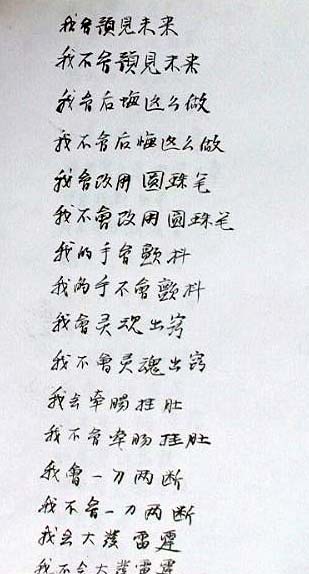 我會預見未来
我不會預見未来
我會后悔这么做
我不會后悔这么做
我會改用圆珠笔
我不會改用圆珠笔
我的手會颤抖
我的手不會颤抖
我會灵魂出窍
我不會灵魂出窍
我会牵腸挂肚
我不會牵腸挂肚
我會一刀两断
我不會一刀两断
我会大發雷霆
我不会大發雷霆